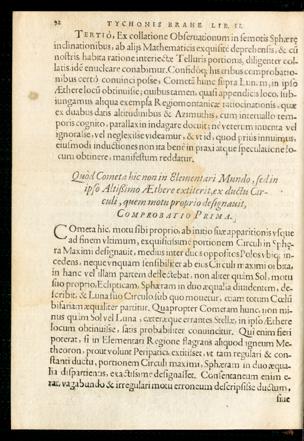 92 TYCHONIS BRAHE LIB. II.
TERTIÒ, Ex collatione Observationum in semotis Sphæræ
inclinationibus, ab alijs Mathematicis exquisitè deprehensis, & cū
nostris habita ratione interiectæ Telluris portionis, diligenter col-
latis idē enucleare conabimur. Confidoq; his tribus comprobatio-
nibus certò convinci posse, Cometā hunc supra Lunam, in ipso
Æthere locū obtinuisse; quibus tamen, quasi appendicis loco, sub-
iungamus aliqua exempla Regiomontanicæ ratiocinationis, quæ
ex duabus datis altitudinibus & Azimuthis, cum intervallo tem-
poris cognito, parallaxin indagare docuit; nè veterum inventa vel
ignorasse, vel neglexisse videamur, & vt id, quod primus innuimus,
eiusmodi inductiones non ita benè in praxi atque speculatione lo-
cum obtinere, manifestum reddatur.
Quòd Cometa hic non in Elementari Mundo, sed in
ipso Altißimo Æthere extiterit, ex ductu Cir-
culi, quem motu proprio designavit,
COMPROBATIO PRIMA.
Cometa hic, motu sibi proprio, ab initio suæ apparitionis vsque
ad finem vltimum, exquisitissimè portionem Circuli in Sphæ-
ra Maximi designauit, medius inter duos oppositos Polos vbiq; in-
cedens, neque vnquam sensibiliter ab eius Circuli maximi orbita,
in hanc vel illam partem deflectebat, non aliter quàm Sol, motu
suo proprio, Eclipticam, Sphæram in duo æqualia diuidentem, de-
scribit, & Luna suo Circulo sub quo mouetur, etiam totum Cœlū
bifariam æqualiter partitur. Quapropter Cometam hunc, non mi-
nus quàm Sol vel Luna, cæteræque errantes Stellæ, in ipso Æthere
locum obtinuisse, satis probabiliter convincitur. Qui enim fieri
poterat, si in Elementari Regione flagrans aliquod igneum Me-
theoron, prout volunt Peripatetici, extitisset, vt tam regulari & con-
stanti ductu, portionem Circuli maximi, Sphæram in duo æqua-
lia dispartientis, exactissimè designasset. Consentaneum enim e-
rat, vagabundo & irregulari motu erroneum descripsisse ductum,
siue